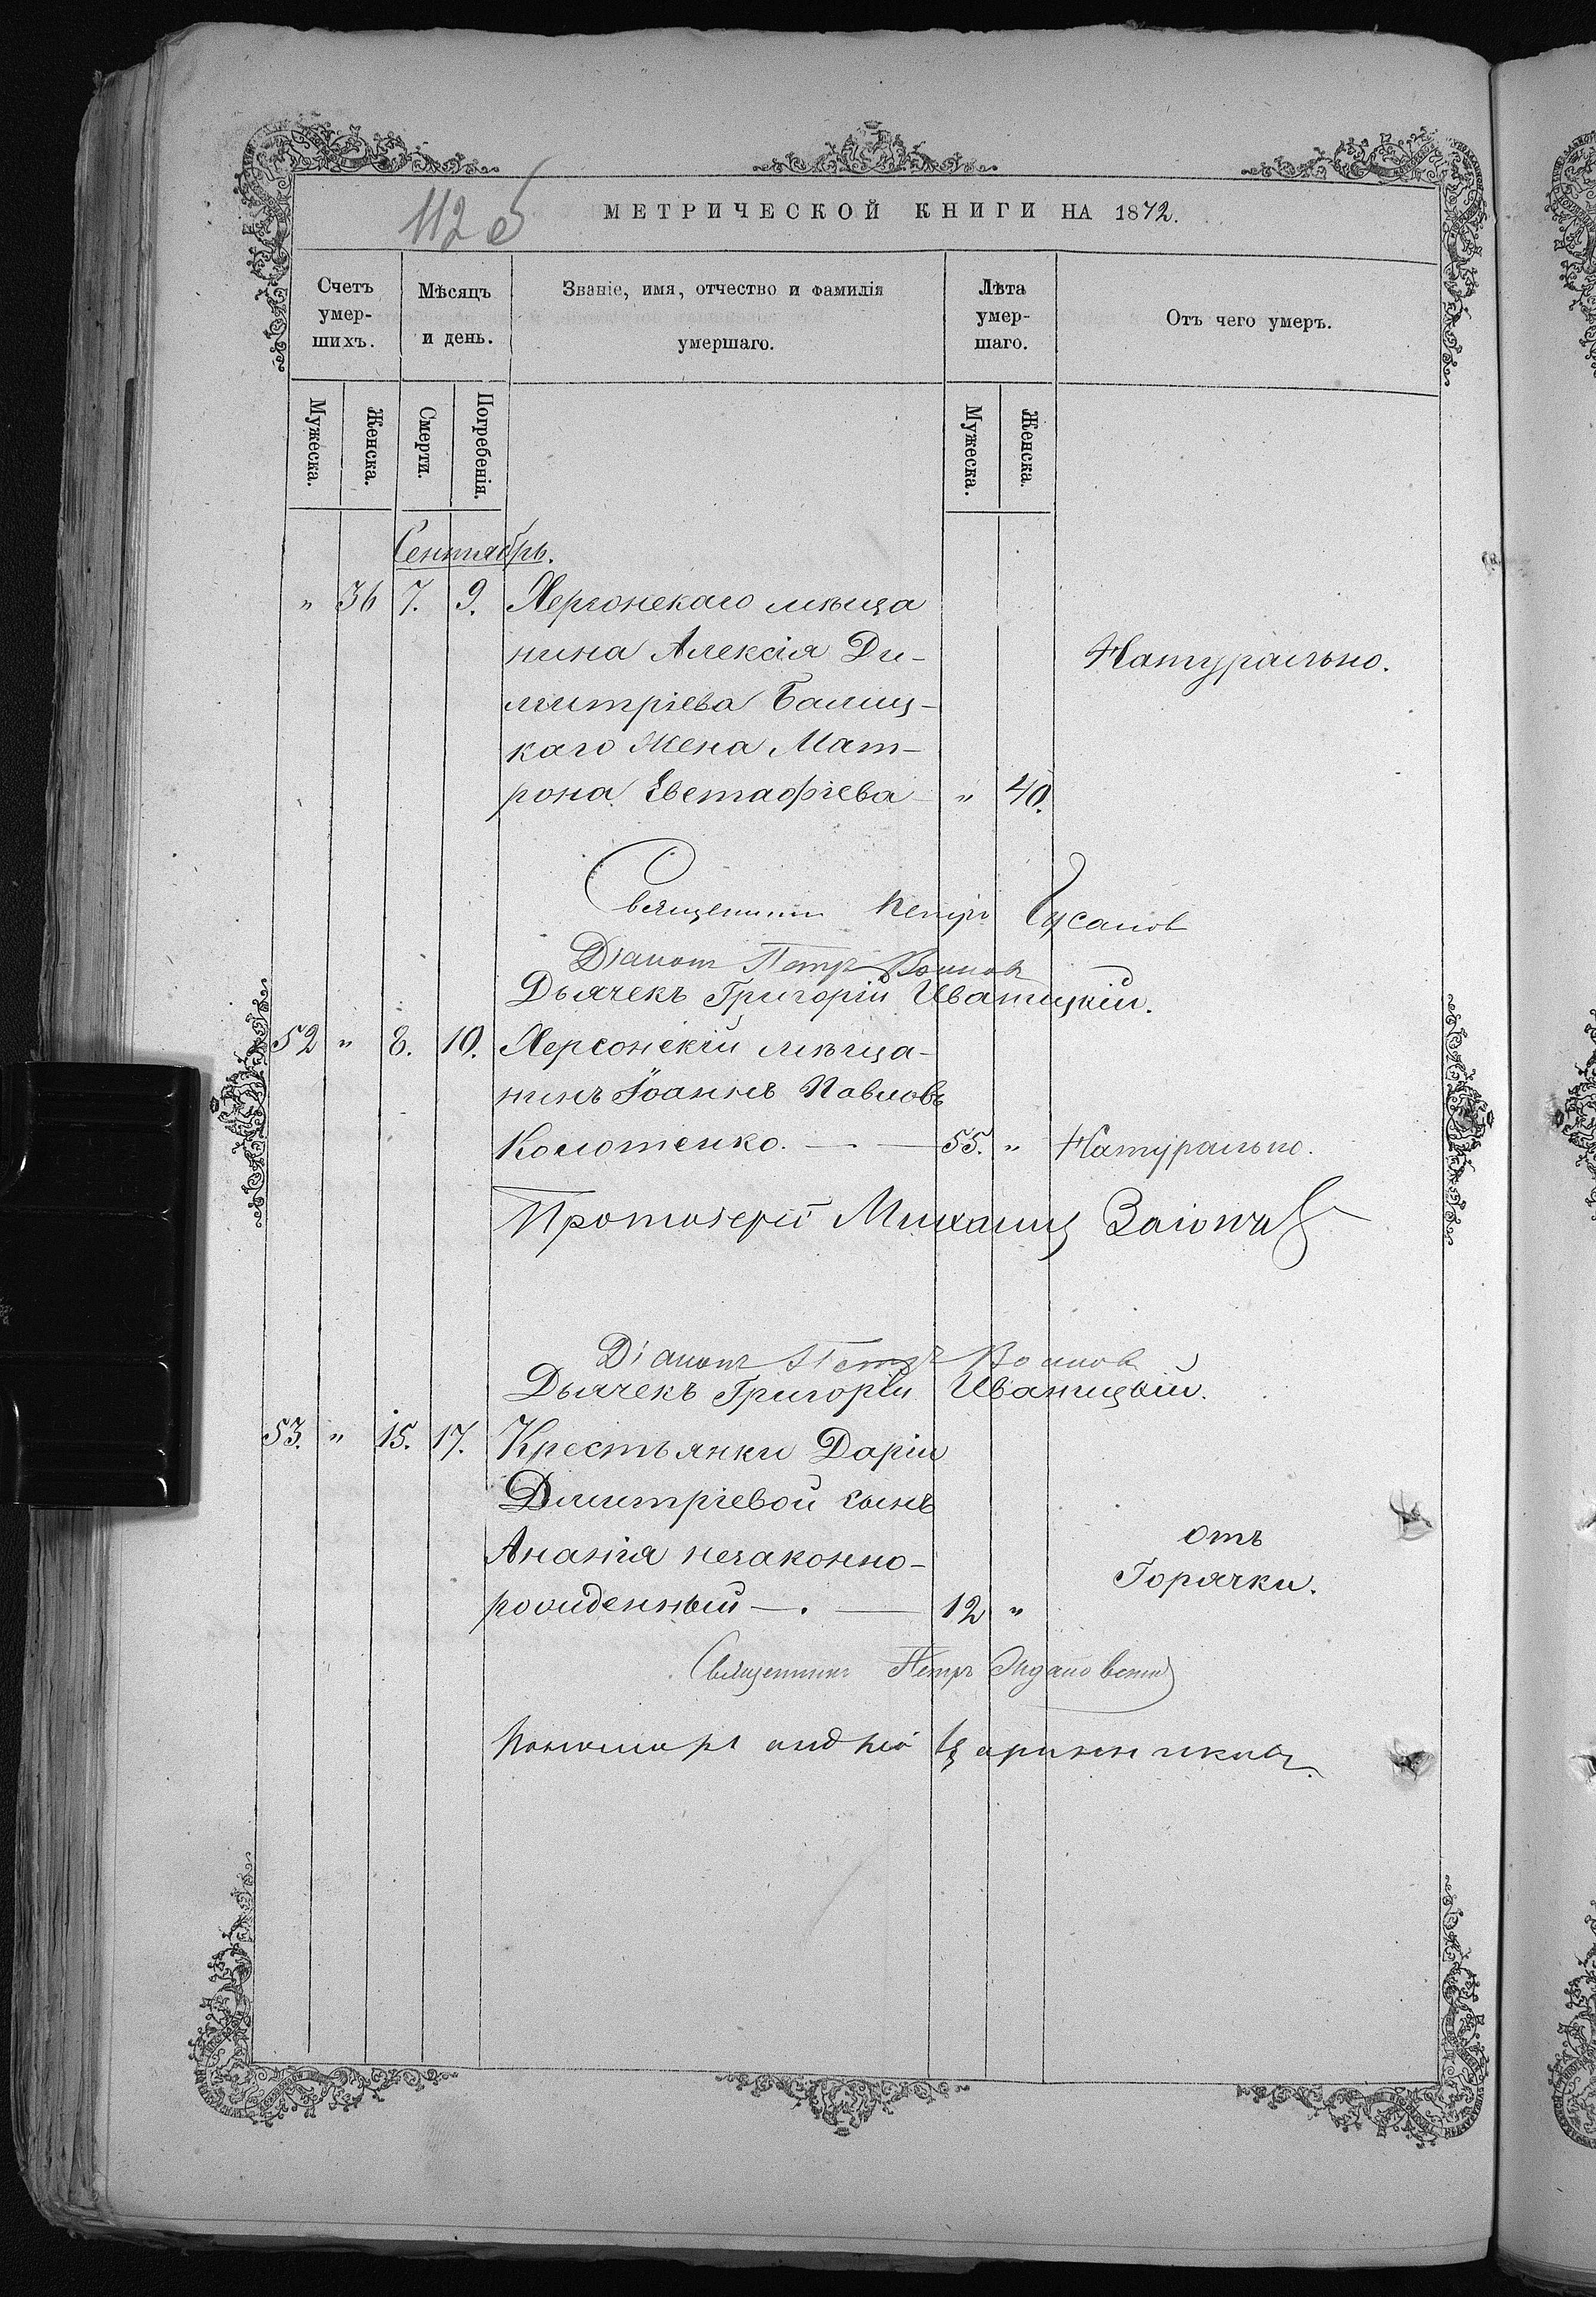 112 об
МЕТРИЧЕСКОЙ КНИГИ НА 1872.
Счетъ умер-шихъ.
Мѣсяцъ и день.
Званіе, имя, отчество и фамилія умершаго.
Лѣта умер-шаго.
Отъ чего умеръ.
Мужеска.
Женска.
Смерти.
Погребенія.
Мужеска.
Женска.
Сентябрь.
" 36 7. 9. Херсонскаго мѣща
нина Алексія Ди-
митріева Балиц-
каго жена Мат-
рона Евстафіева " 40.
Натурально.
Священникъ Петръ
Діаконъ Петръ
Дьячекъ Григорій Иваницкій.
52 " 8. 10. Херсонскій мѣща-
нинъ Іоаннъ Павловъ
Колотенко. — 55. " Натурально.
Протоіерей Михаилъ
Діаконъ Петръ
Дьячекъ Григорій Иваницкій.
53. " 15. 17. Крестьянки Даріи
Димитріевой сынъ
Ананія незаконно-
рожденный —. — 12 "
отъ
Горячки.
Священникъ Петръ
Пономарь